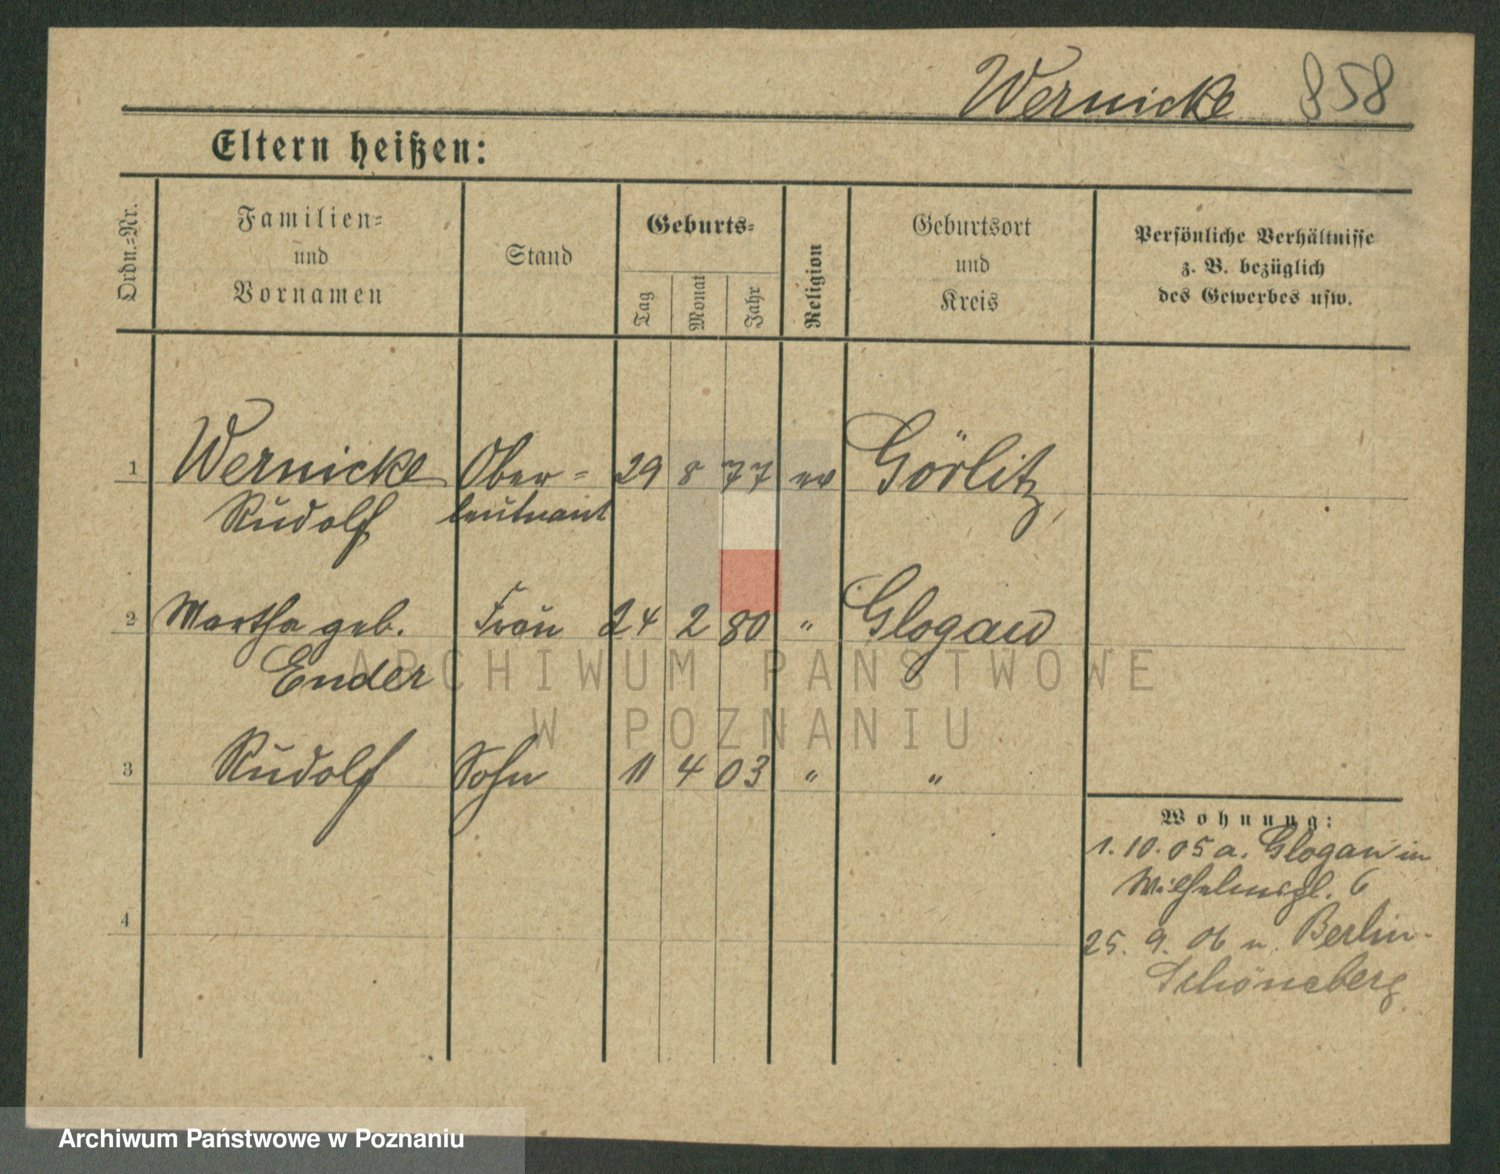 Wernicke 858
Eltern heißen:
Ordn.-Nr.
Familien- und Vornamen
Stand
Geburts-
Tag
Monat
Jahr
Religion
Geburtsort und Kreis
Persönliche Verhältnisse
z. B. bezüglich
des Gewerbes usw.
1 Wernicke Ober- 29 8 77 ev Görlitz
Rudolf leutnant
2 Martha geb. Frau 24 2 80 " Glogau
Ender
3 Rudolf Sohn 11 4 03 " "
4
Wohnung:
1.10.05 a. Glogau in
Wilhelmspl. 6
25. 9. 06 n. Berlin-
Schöneberg
ARCHIWUM PAŃSTWOWE
W POZNANIU
Archiwum Państwowe w Poznaniu